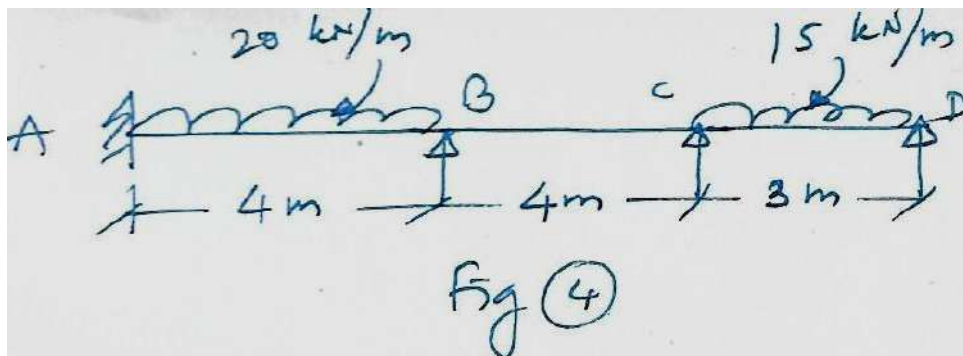 20 kN/m 15 kN/m
A B C D
4m 4m 3m
Fig 4